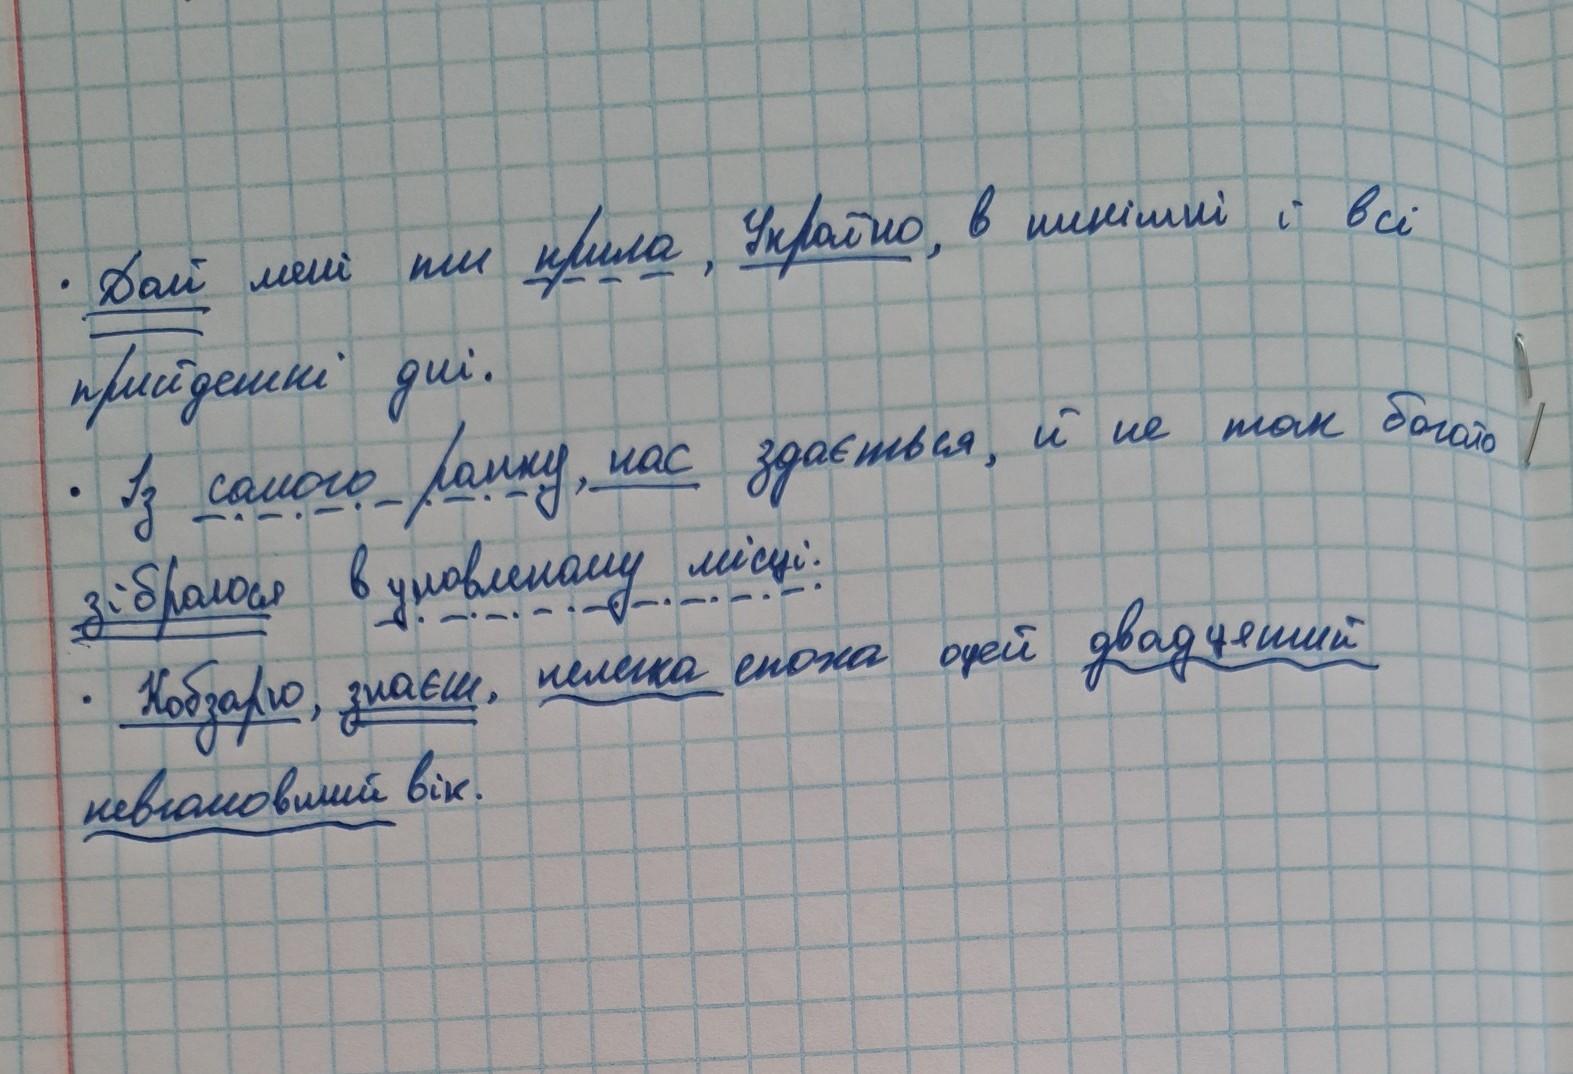 · Дай мені ти крила, Україно, в нинішні і всі
прийдешні дні.
· Із самого ранку, нас здається, й не так багато
зібралося в умовленому місці.
· Кобзарю, знаєш, нелегка епоха оцей двадцятий
невгамовний вік.